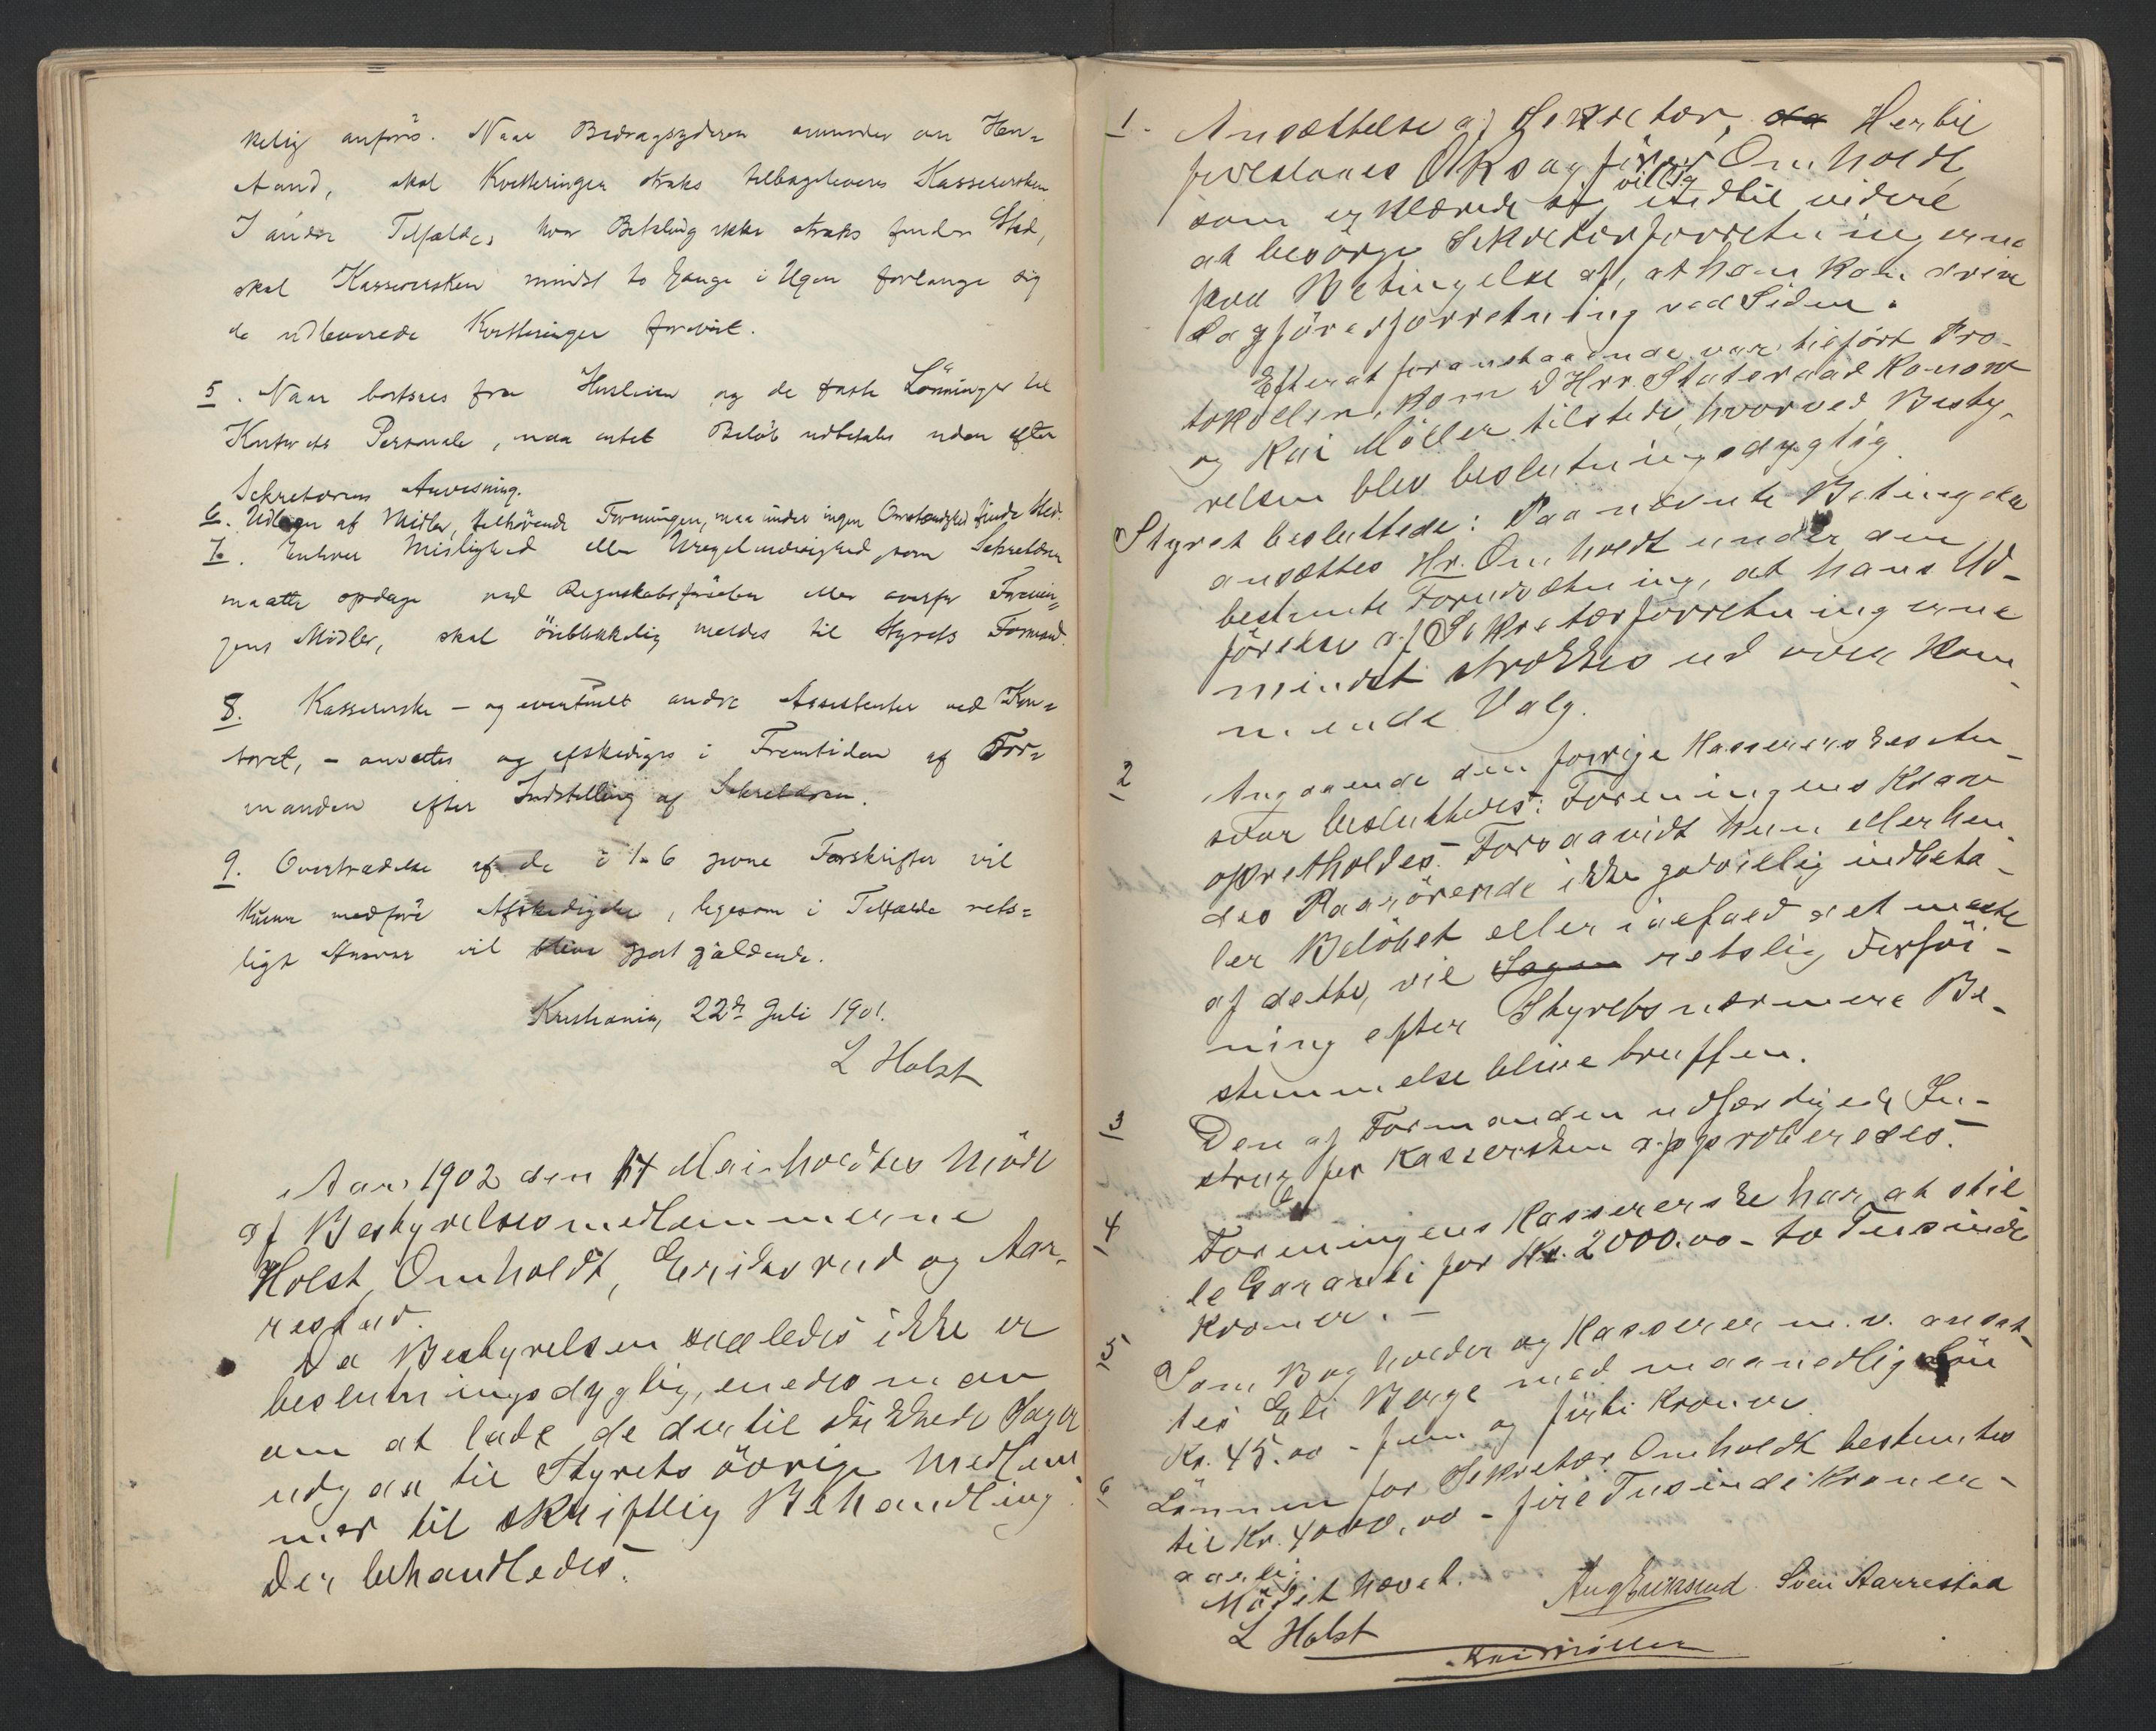 kelig anføres. Naar Bidragsyderen anmoder om Hen=
stand, skal Kvitteringen straks tilbageleveres Kassererske
I andre Tilfælde, hvor Betaling ikke straks finder Sted,
skal Kassersken mindst to Gange i Ugen forlange sig
de udleverede Kvitteringer forevist.
5. Naar bortsees fra Husleien og de faste Lønninger til
Kontorets Personale, maa intet Beløb udbetales uden efter
Sekretærens Anvisning.
6. Udlaan af Midler, tilhørende Foreningen, maa under ingen Omstændighed finde Sted.
7. Enhver Mislighed eller Uregelmæssighed, som Sekretæren
maatte opdage ved Regnskabsførselen eller overfor Forenin=
gens Midler, skal øieblikkelig meldes til Styrets Formand.
8. Kassererske – og eventuelt andre Assistenter ved Kon=
toret, – ansættes og afskediges i Fremtiden af For=
manden efter Indstilling af Sekretæren.
9. Overtrædelse af de i 1-6 givne Forskrifter vil
kunne medføre Afskedigelse, ligesom i Tilfælde rets=
ligt Ansvar vil blive gjort gjældende.
Kristiania, 22de Juli 1901.
L Holst
Aar 1902 den 14 Mai holdtes Møde
af Bestyrelsesmedlemmerne
Holst, Omholdt, Eriksrud og Aar-
restad.
Da Bestyrelsen saaledes ikke er
beslutningsdygtig, enedes man
om at lade de dertil skikkede Sager
udgaa til Styrets øvrige Medlem
mer til skriftlig Behandling.
Der behandledes:
1. Ansættelse af Sekretær, da Hertil
foresloges ORsagfører Omholdt,
som erklærede sig villig indtil videre
at besørge Sekretærforretningerne
paa Betingelse af, at han kan drive
Sagførerforretning ved Siden.
Efterat foranstaaende var tilført Pro-
tokollen, kom DHrr. Statsraad Konow
og Kai Møller tilstede, hvorved Besty-
relsen blev beslutningsdygtig
Styret besluttede: Paa nævnte Betingelse
ansættes Hr. Omholdt under den
bestemte Forudsætning, at hans Ud-
førelse af Sekretærforretningerne
mindst strækkes ud over kom-
mende Valg.
2 Angaaende den forrige Kassererskes An-
svar besluttedes: Foreningens Krav
opretholdes. Forsaavidt hun eller hen-
des Paarørende ikke godvillig indbeta-
ler Beløbet eller ialfald det meste
af dette, vil Sagen retslig Forføi-
ning efter Styrets nærmere Be-
stemmelse blive truffen.
3 Den af Formanden udfærdigede In-
struz for Kassersken approberedes.
4 Foreningens Kassererske har at stil
le Garanti for Kr. 2000.00 – to Tusinde
Kroner. –
5 Som Bogholder og Kasserer m. v. ansat-
tes Eli Berge med maanedlig Løn
Kr. 45.00 – fem og førti Kroner.
6 Lønnen for Sekretær Omholdt bestemtes
til Kr. 4000,00 – fire Tusinde Kroner –
aarlig.
Mødet hævet.
Aug Eriksrud. Sven Aarrestad
L Holst
Kai Møller